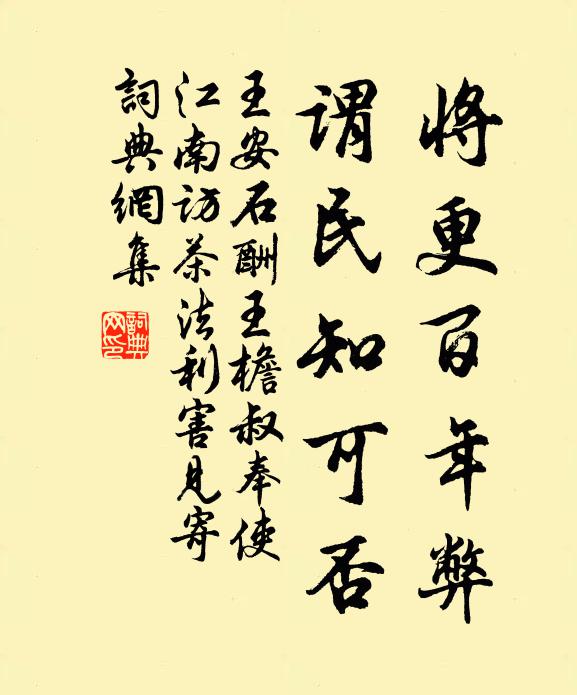 將更百年弊
謂民知可否
王安石酬王檐叔奉使
江南訪茶法利害見寄
詞典網集
詞典
网印